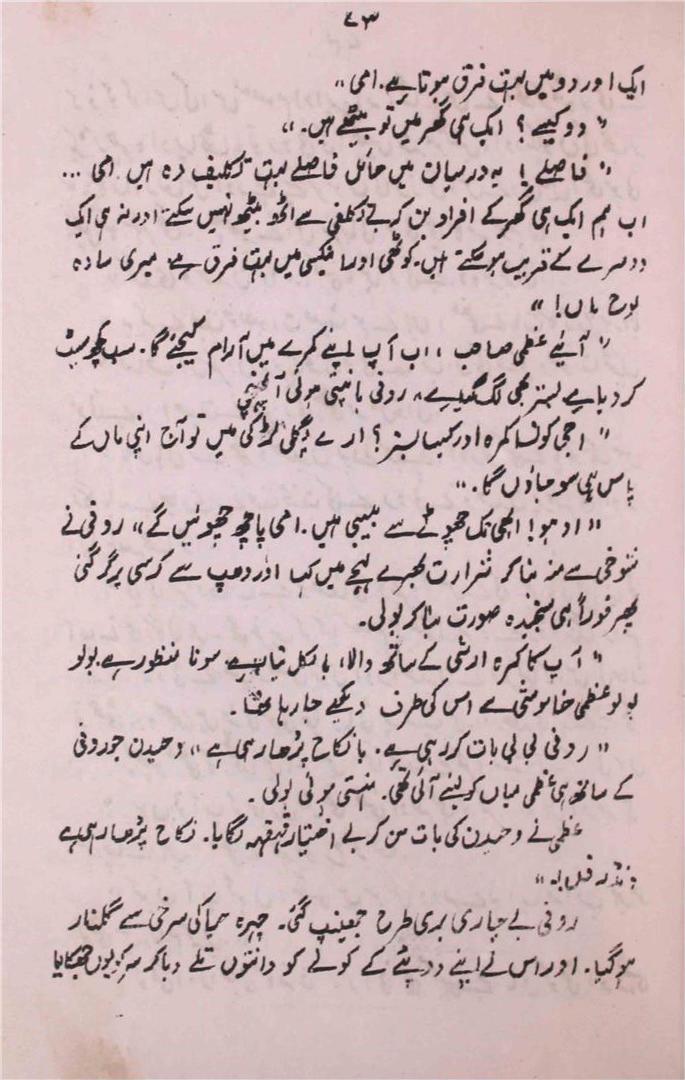 ۷۳
ایک اور دو میں بہت فرق ہوتا ہے۔ امی "
" دو کیسے؟ ایک ہی گھر میں تو بیٹھے ہیں۔ "
" فاصلے! یہ درمیان میں حائل فاصلے بہت تکلیف دہ ہیں امی ...
اب ہم ایک ہی گھر کے افراد بن کر بے تکلفی سے اٹھ بیٹھ نہیں سکتے اور نہ ہی ایک
دوسرے کے قریب ہو سکتے ہیں۔ کوٹھی اور انیکسی میں بہت فرق ہے میری سادہ
لوح ماں! "
" آئیے عظمی صاحب ، اب آپ اپنے کمرے میں آرام کیجئے گا۔ سب کچھ سیٹ
کر دیا ہے بستر بھی لگ گیا ہے، روفی ہانپتی ہوئی آ پہنچی
" اجی کونسا کمرہ اور کیسا بستر؟ ارے پگلی لڑکی میں تو آج اپنی ماں کے
پاس ہی سو جاؤں گا۔ "
" اوہو! ابھی تک چھوٹے سے بیبی ہیں۔ امی پا چھو چھوئیں گے " روفی نے
شوخی سے منہ بنا کر شرارت بھرے لہجے میں کہا اور دھپ سے کرسی پر گر گئی
پھر فوراً ہی سنجیدہ صورت بنا کر بولی۔
" آپ کا کمرہ ارشی کے ساتھ والا، بالکل تیار ہے سونا منظور ہے بولو
بولو عظمی خاموشی سے اس کی طرف دیکھے جا رہا تھا۔
" روفی بی بی بات کر رہی ہے۔ یا نکاح پڑھا رہی ہے " وحیدن جو روفی
کے ساتھ ہی عظمی میاں کو لینے آئی تھی۔ ہنستی ہوئی بولی۔
عظمی نے وحیدن کی بات سن کر بے اختیار قہقہہ لگایا۔ نکاح پڑھا رہی ہے
روفی بے چاری بری طرح جھینپ گئی۔ چہرہ حیا کی سرخی سے گلنار
ہو گیا۔ اور اس نے اپنے دوپٹے کے کونے کو دانتوں تلے دبا کر سر کو یوں جھکا لیا